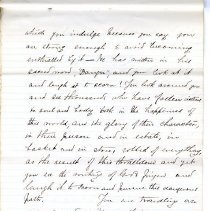 which you indulge because you say you
are strong enough to avoid becoming
enthralled by it — He has written in his
sacred word "Danger," and you look at it
and laugh it to scorn! You look around you
and see thousands who have fallen victims
to soul and body both in the happiness of
this world, and the glory of their characters
in their person and in estate, in
basket and in store, robbed of everything
as the result of this thralldom and yet
you see the writing of God's finger and
laugh it to scorn and pursue this dangerous
path. You are travelling on